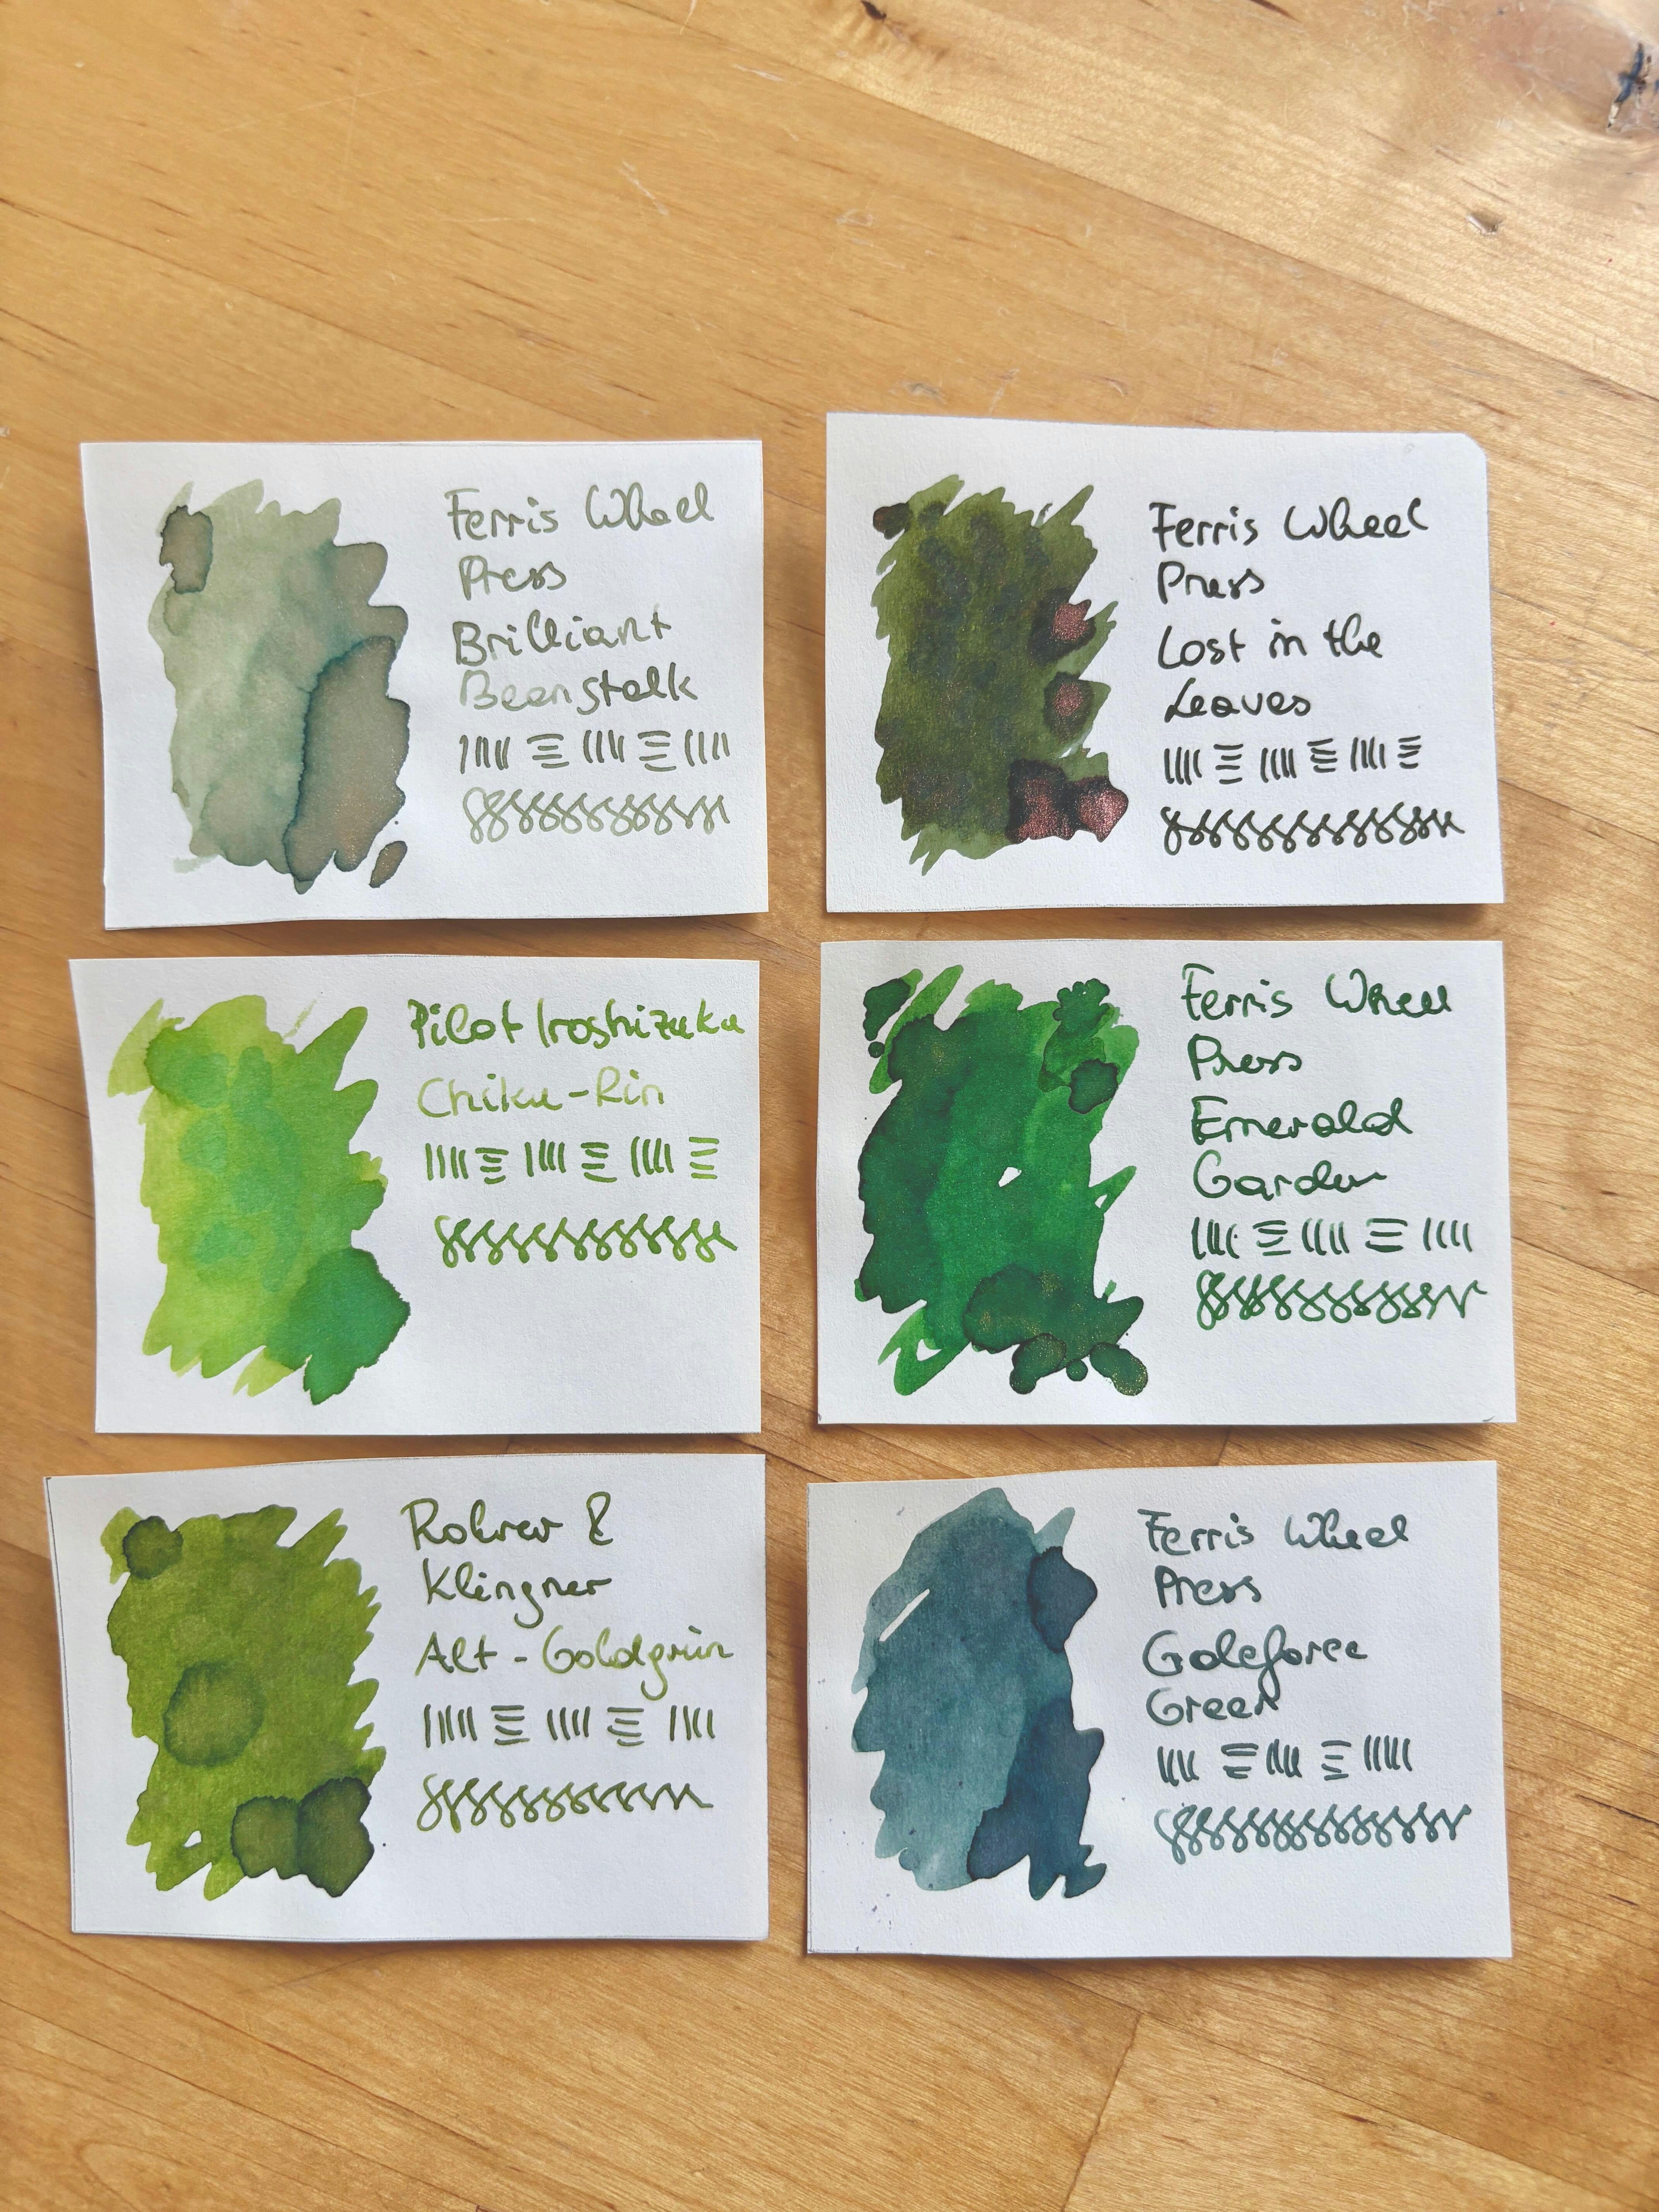 Ferris Wheel
Press
Brilliant
Beanstalk
Ferris Wheel
Press
Lost in the
Leaves
Pilot Iroshizuku
Chiku-Rin
Ferris Wheel
Press
Emerald
Garden
Rohrer &
Klingner
Alt-Goldgrün
Ferris Wheel
Press
Goleforee
Green